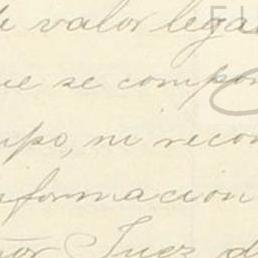 de valor legal
ue se compon
upo, ni recon
nformacion
ñor Juez d